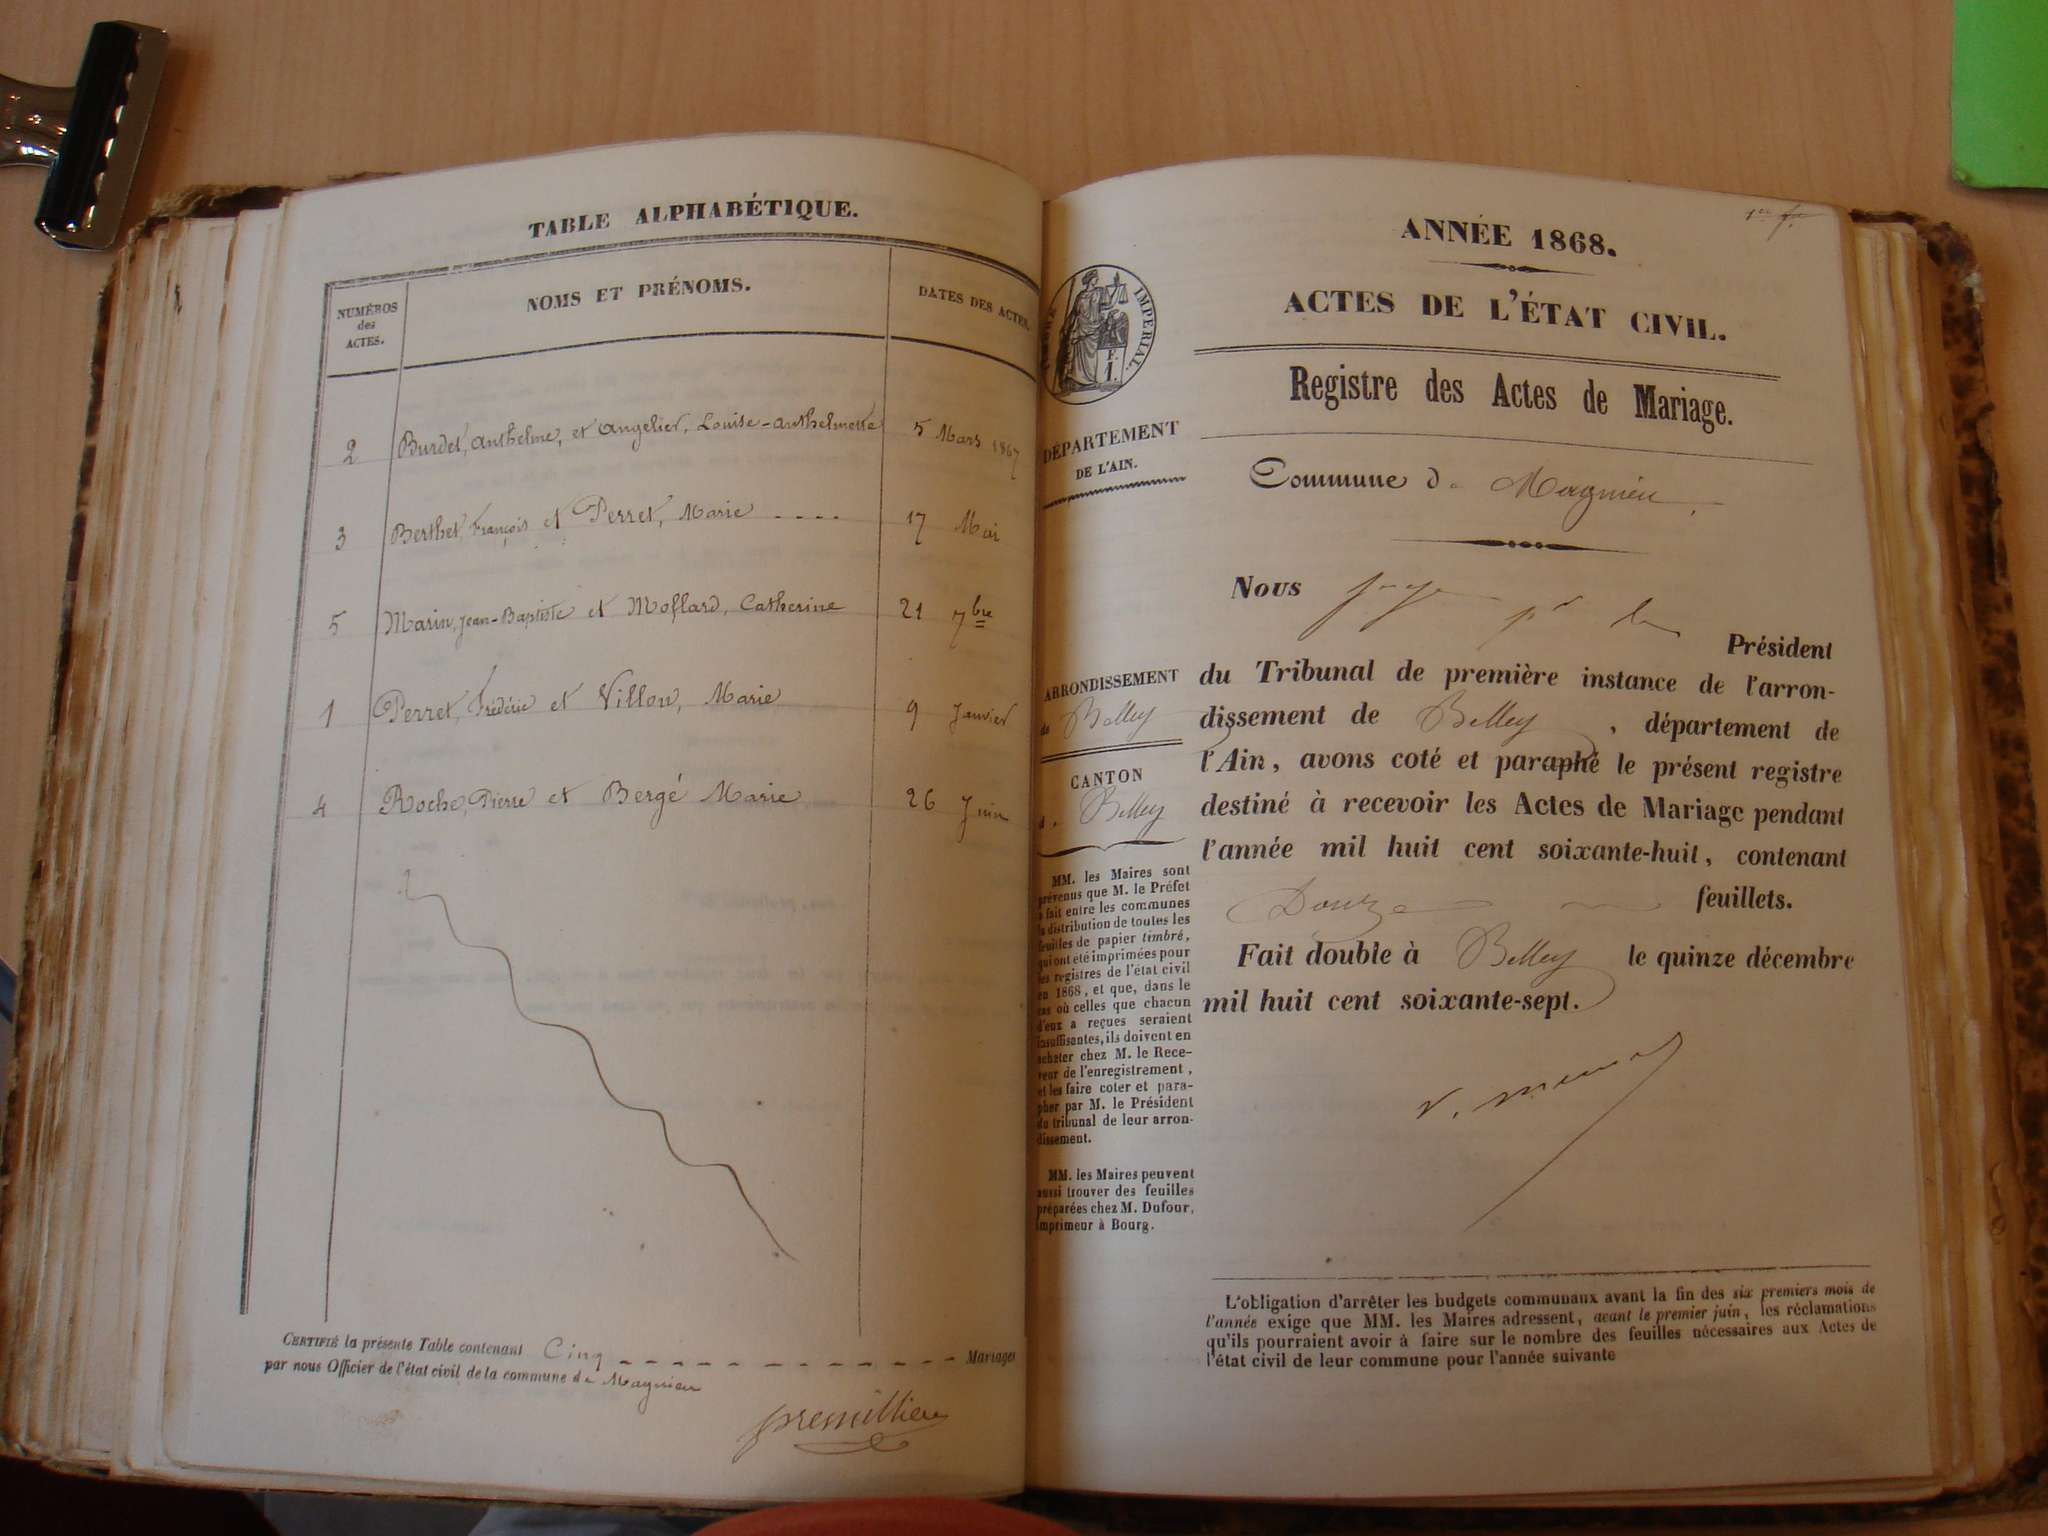 TABLE ALPHABÉTIQUE.
NUMÉROS
des
ACTES.
NOMS ET PRÉNOMS.
DATES DES ACTES.
2 Burdet, Anthelme, et Angelier, Louise-Anthelmette 5 Mars 1867
3 Berthet, François et Perret, Marie 17 Mai
5 Marin, Jean-Baptiste et Mollard, Catherine 21 7bre
1 Perret, Frédéric et Villon, Marie 9 Janvier
4 Roche, Pierre et Bergé Marie 26 Juin
CERTIFIÉ la présente Table contenant Cinq Mariages
par nous Officier de l'état civil de la commune de Magnieu
premillieu
ANNÉE 1868.
ACTES DE L'ÉTAT CIVIL.
Registre des Actes de Mariage.
Commune de Magnieu
IMPERIAL.
DÉPARTEMENT
DE L'AIN.
ARRONDISSEMENT
de Belley
CANTON
d. Belley
MM. les Maires sont
prévenus que M. le Préfet
a fait entre les communes
la distribution de toutes les
feuilles de papier timbré,
qui ont été imprimées pour
les registres de l'état civil
en 1868, et que, dans le
cas où celles que chacun
d'eux a reçues seraient
insuffisantes, ils doivent en
acheter chez M. le Rece-
veur de l'enregistrement,
et les faire coter et para-
pher par M. le Président
du tribunal de leur arron-
dissement.
MM. les Maires peuvent
aussi trouver des feuilles
préparées chez M. Dufour,
imprimeur à Bourg.
Nous juge pr le Président
du Tribunal de première instance de l'arron-
dissement de Belley, département de
l'Ain, avons coté et paraphé le présent registre
destiné à recevoir les Actes de Mariage pendant
l'année mil huit cent soixante-huit, contenant
Douze feuillets.
Fait double à Belley le quinze décembre
mil huit cent soixante-sept.
L'obligation d'arrêter les budgets communaux avant la fin des six premiers mois de
l'année exige que MM. les Maires adressent, avant le premier juin, les réclamations
qu'ils pourraient avoir à faire sur le nombre des feuilles nécessaires aux Actes de
l'état civil de leur commune pour l'année suivante